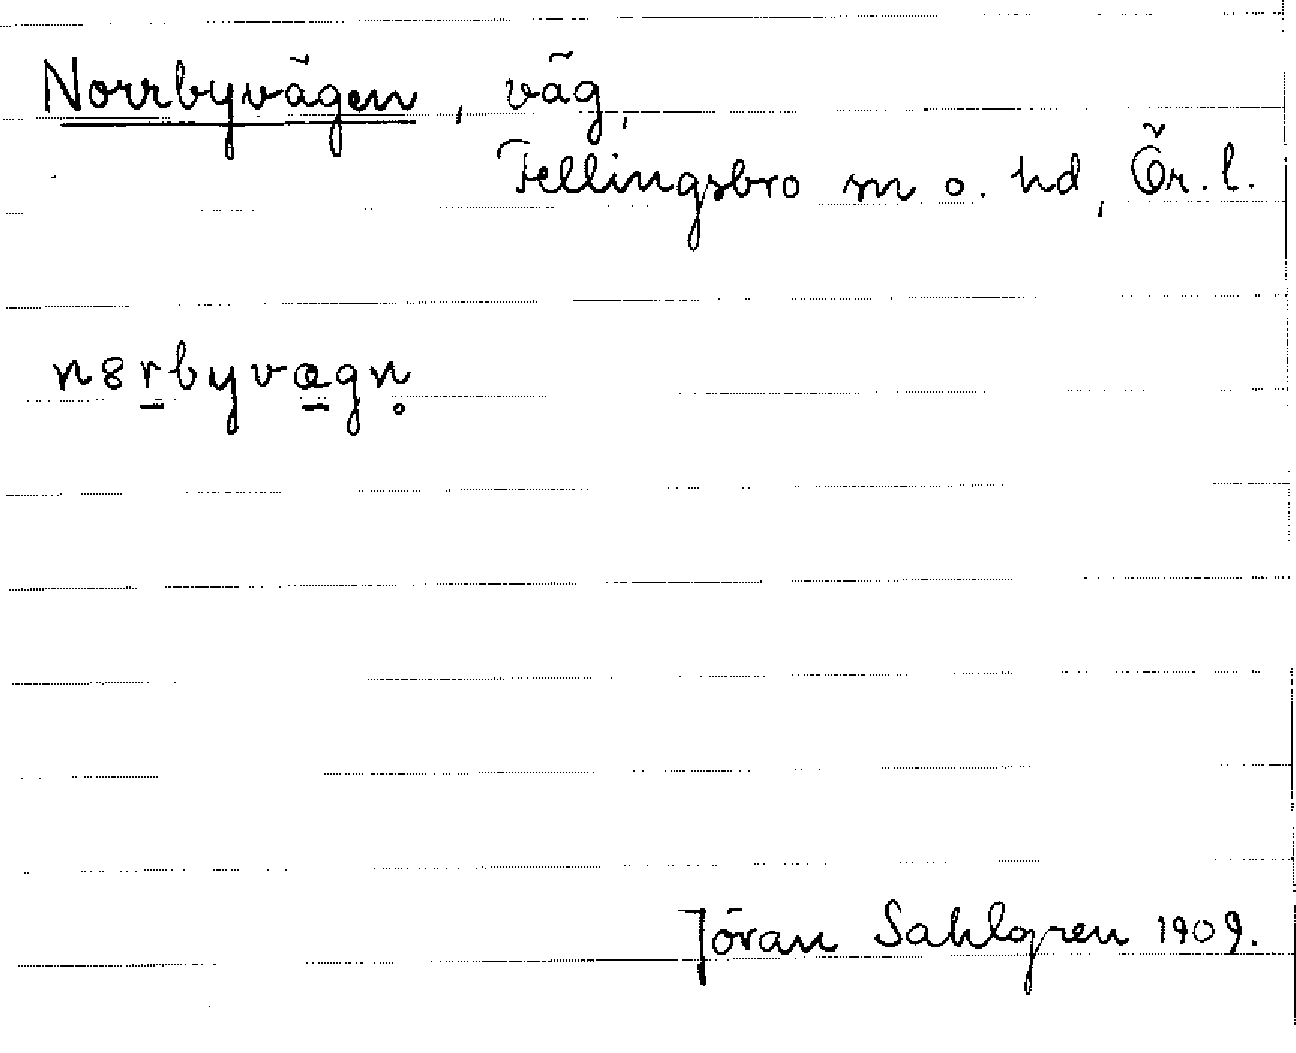 Norrbyvägen, väg,
Fellingsbro sn o. hd, Ör. l.
n8r̠byvæ̠gn̥
Jöran Sahlgren 1909.